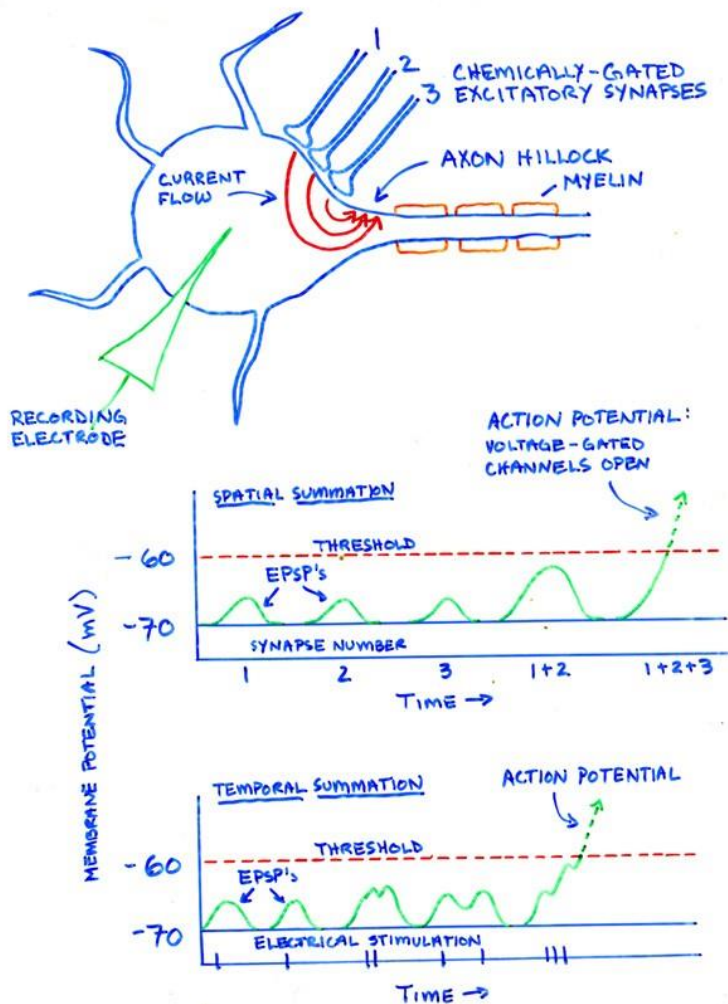 1
2
3
CHEMICALLY-GATED
EXCITATORY SYNAPSES
CURRENT
FLOW
AXON HILLOCK
MYELIN
RECORDING
ELECTRODE
ACTION POTENTIAL:
VOLTAGE-GATED
CHANNELS OPEN
MEMBRANE POTENTIAL (mV)
SPATIAL SUMMATION
THRESHOLD
-60
EPSP's
-70
SYNAPSE NUMBER
1 2 3 1+2 1+2+3
TIME →
TEMPORAL SUMMATION
ACTION POTENTIAL
THRESHOLD
-60
EPSP's
-70
ELECTRICAL STIMULATION
TIME →